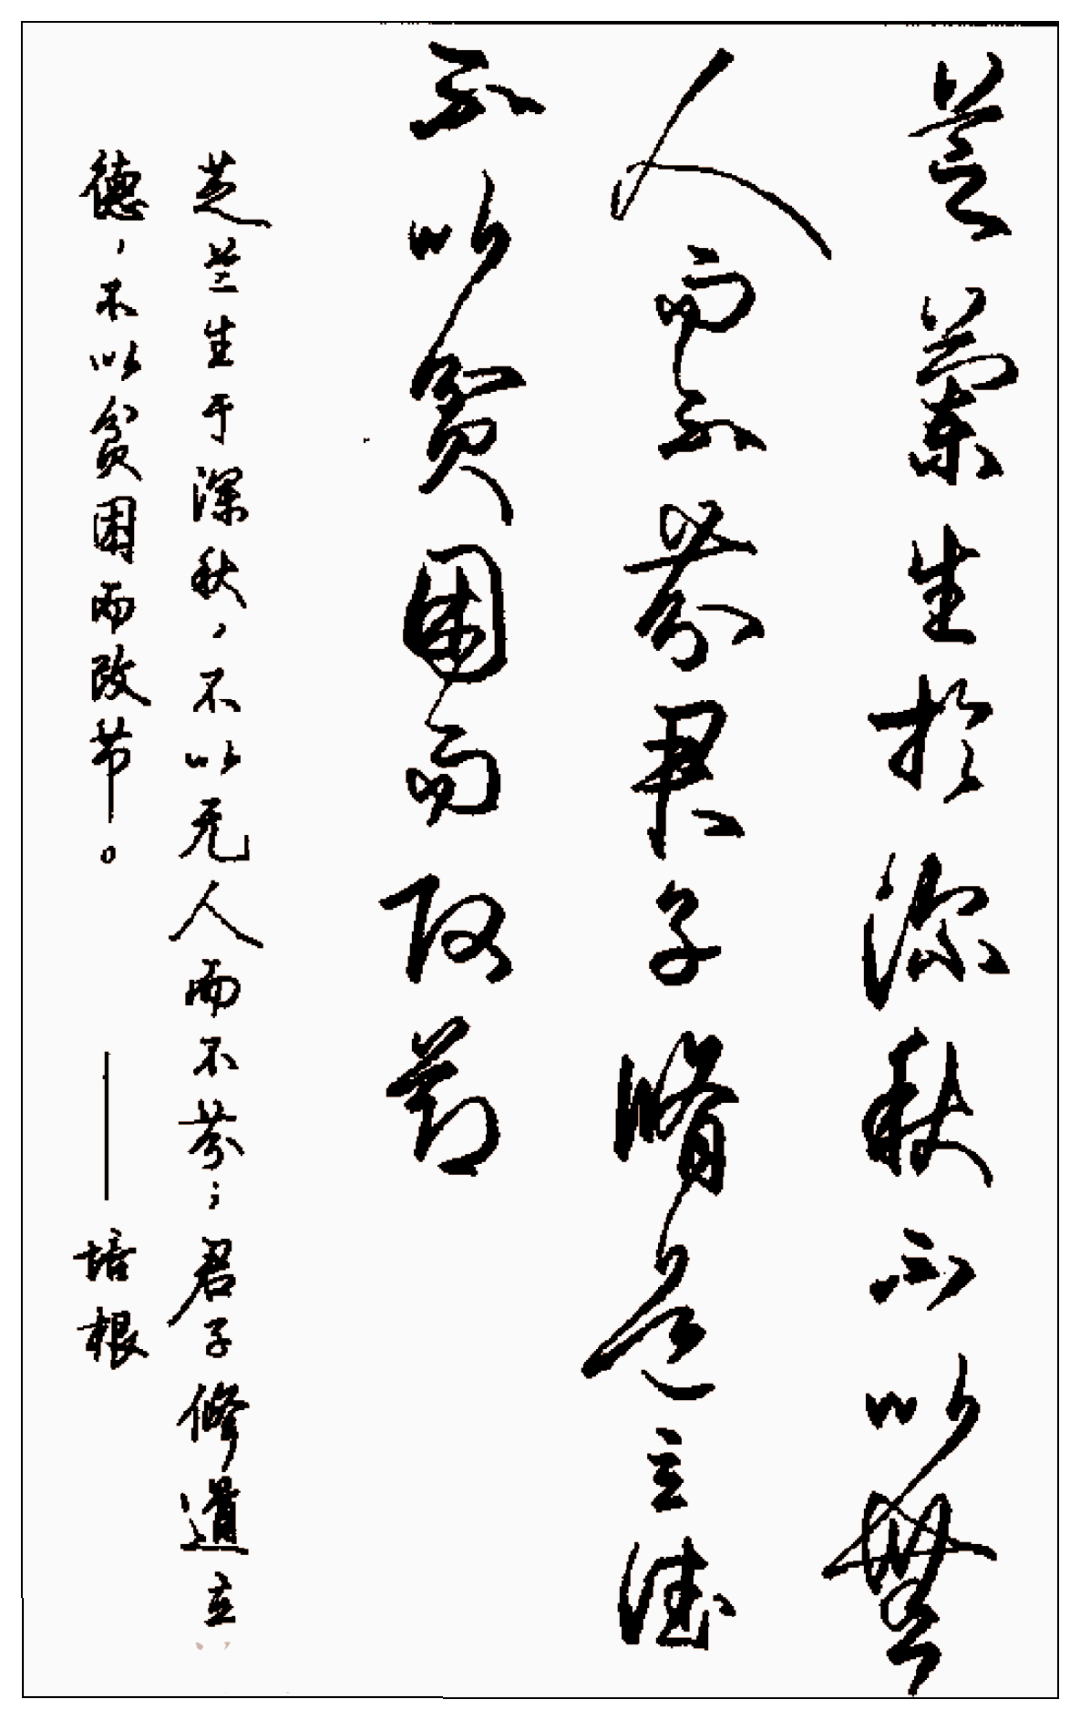 芝蘭生於深秋不以無
人而不芬君子脩道立德
不以貧困而改節
芝兰生于深秋，不以无人而不芬；君子修道立
德，不以贫困而改节。——培根